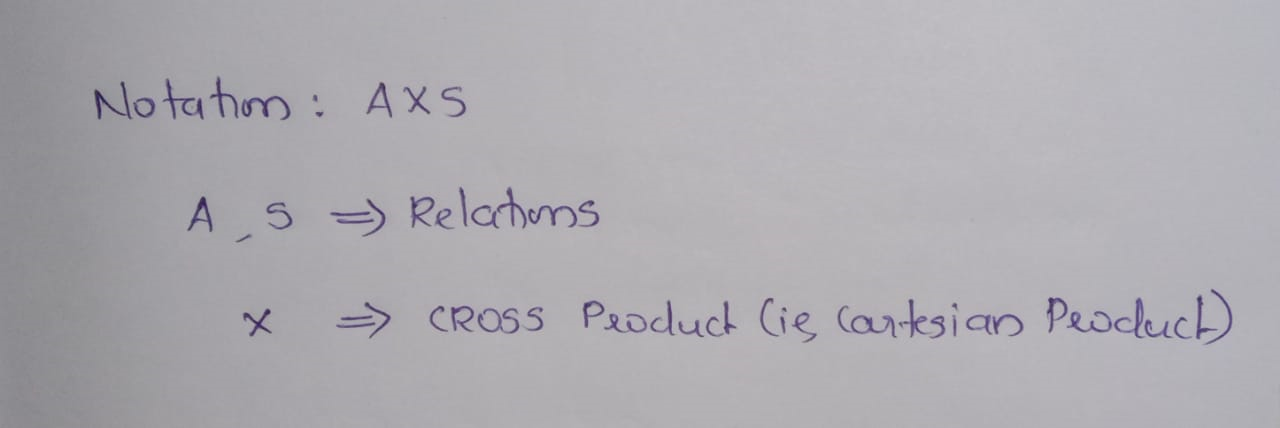 Notation: A X S
A, S ⇒ Relations
X ⇒ CROSS Product (ie, Cartesian Product)